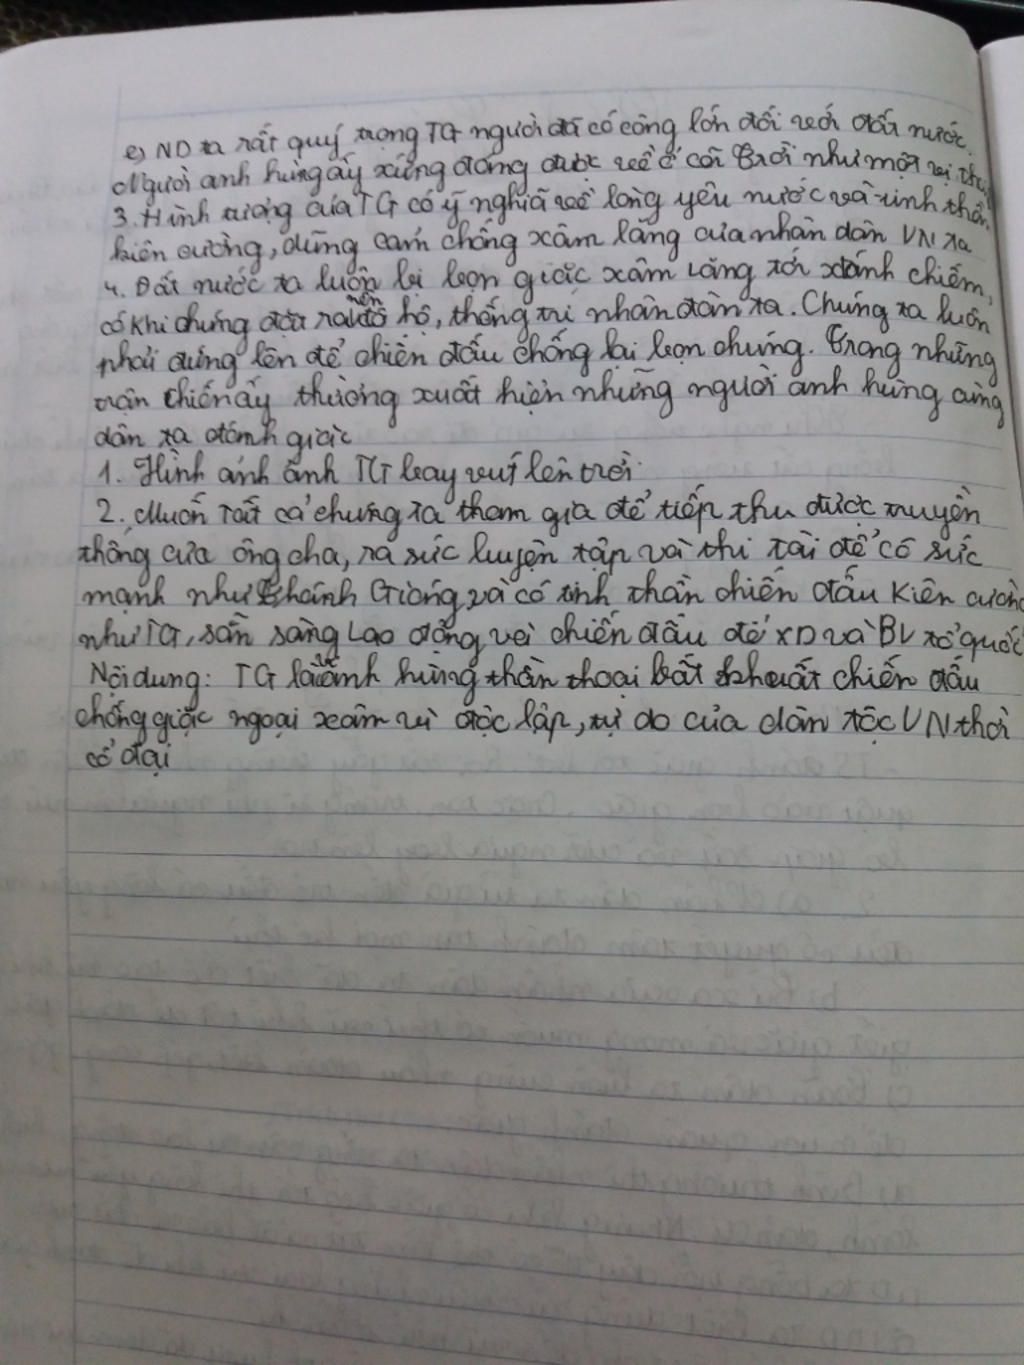 e) ND ta rất quý trọng TG người đã có công lớn đối với đất nước.
Người anh hùng ấy xứng đáng được về ở cõi trời như một vị thần
3. Hình tượng của TG có ý nghĩa về lòng yêu nước và tinh thần
kiên cường, dũng cảm chống xâm lăng của nhân dân VN ta
4. Đất nước ta luôn bị bọn giặc xâm lăng tới đánh chiếm,
có khi chúng đặt ra nền đô hộ, thống trị nhân dân ta. Chúng ta luôn
phải đứng lên để chiến đấu chống lại bọn chúng. Trong những
trận chiến ấy thường xuất hiện những người anh hùng cùng
dân ta đánh giặc
1. Hình ảnh ảnh TG bay vút lên trời.
2. Muốn tất cả chúng ta tham gia để tiếp thu được truyền
thống của ông cha, ra sức luyện tập và thi tài để có sức
mạnh như Thánh Gióng và có tinh thần chiến đấu kiên cường
như TG, sẵn sàng lao động vì chiến đấu để XD và BV tổ quốc
Nội dung: TG là vị anh hùng thần thoại bất khuất chiến đấu
chống giặc ngoại xâm vì độc lập, tự do của dân tộc VN thời
cổ đại